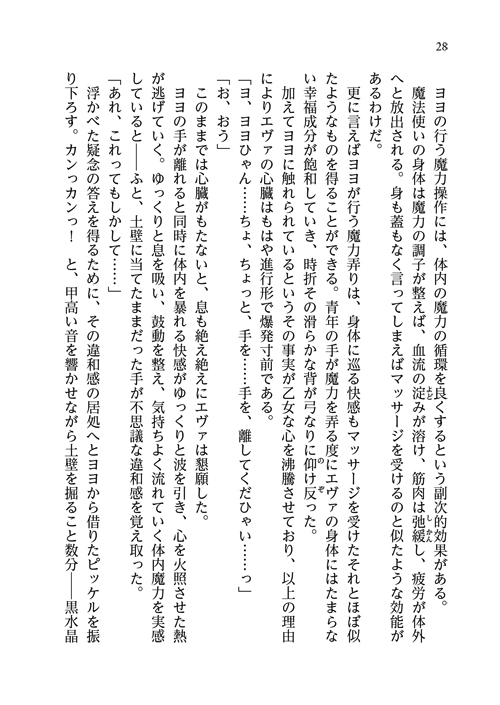 28
ヨヨの行う魔力操作には、体内の魔力の循環を良くするという副次的効果がある。
魔法使いの身体は魔力の調子が整えば、血流の淀みが溶け、筋肉は弛緩し、疲労が体外
へと放出される。身も蓋もなく言ってしまえばマッサージを受けるのと似たような効能が
あるわけだ。
更に言えばヨヨが行う魔力弄りは、身体に巡る快感もマッサージを受けたそれとほぼ似
たようなものを得ることができる。青年の手が魔力を弄る度にエヴァの身体にはたまらな
い幸福成分が飽和していき、時折その滑らかな背が弓なりに仰け反った。
加えてヨヨに触れられているというその事実が乙女な心を沸騰させており、以上の理由
によりエヴァの心臓はもはや進行形で爆発寸前である。
「ヨ、ヨヨひゃん……ちょ、ちょっと、手を……手を、離してくだひゃい……っ」
「お、おう」
このままでは心臓がもたないと、息も絶え絶えにエヴァは懇願した。
ヨヨの手が離れると同時に体内を暴れる快感がゆっくりと波を引き、心を火照させた熱
が逃げていく。ゆっくりと息を吸い、鼓動を整え、気持ちよく流れていく体内魔力を実感
していると――ふと、土壁に当てたままだった手が不思議な違和感を覚え取った。
「あれ、これってもしかして……」
浮かべた疑念の答えを得るために、その違和感の居処へとヨヨから借りたピッケルを振
り下ろす。カンっカンっ！　と、甲高い音を響かせながら土壁を掘ること数分――黒水晶